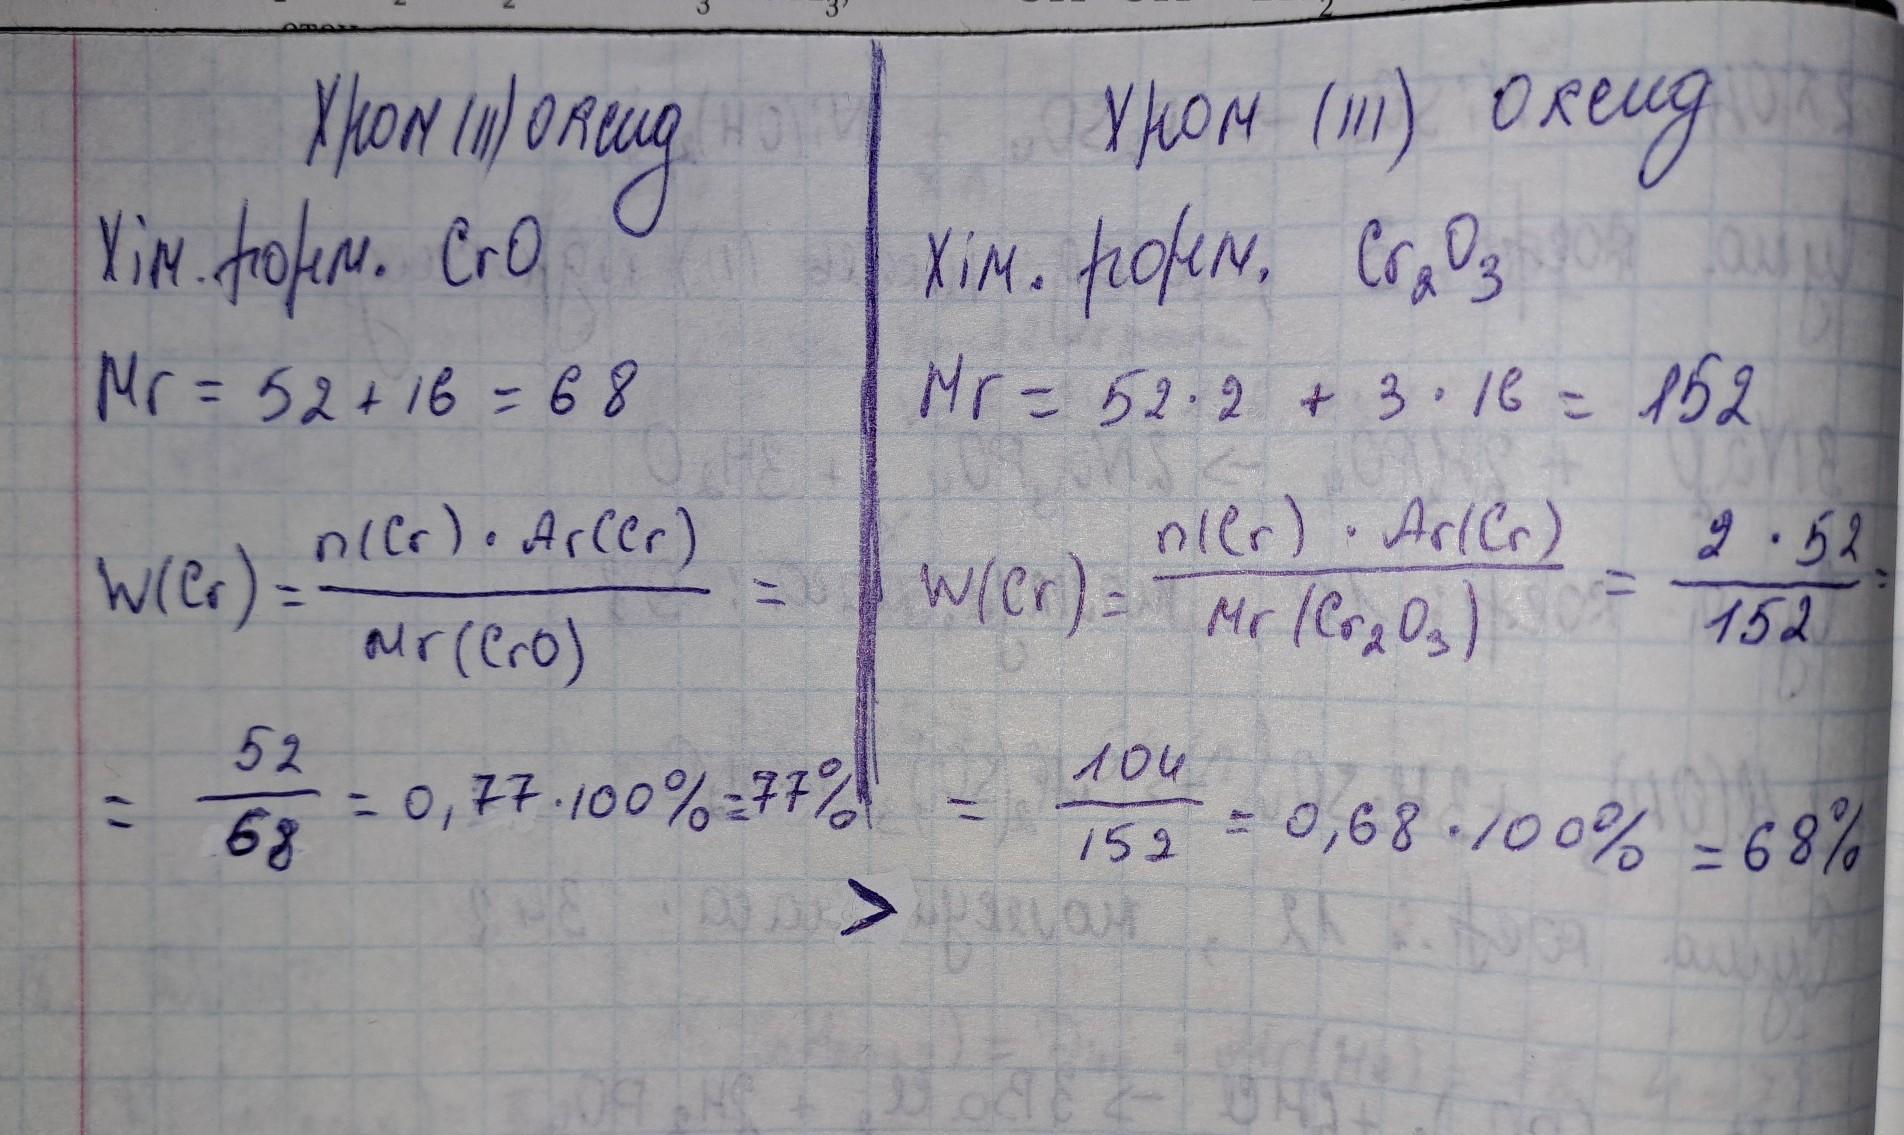 Хром (II) оксид
Хім. форм. CrO
Mr = 52 + 16 = 68
W(Cr) = n(Cr) · Ar(Cr) / Mr(CrO) =
= 52 / 68 = 0,77 · 100% = 77%
Хром (III) оксид
Хім. форм. Cr₂O₃
Mr = 52 · 2 + 3 · 16 = 152
W(Cr) = n(Cr) · Ar(Cr) / Mr(Cr₂O₃) = 2 · 52 / 152 =
= 104 / 152 = 0,68 · 100% = 68%
>